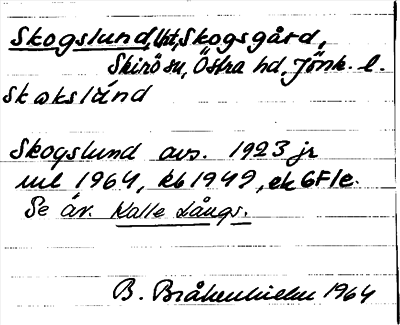 Skogslund, lht, Skogsgård,
Skirö sn, Östra hd, Jönk. l.
skɷkslúnd
Skogslund avs. 1923 jr
ml 1964, kb 1949, ek 6F1e.
Se äv. Kalle Långs.
B. Bråkenhielm 1964